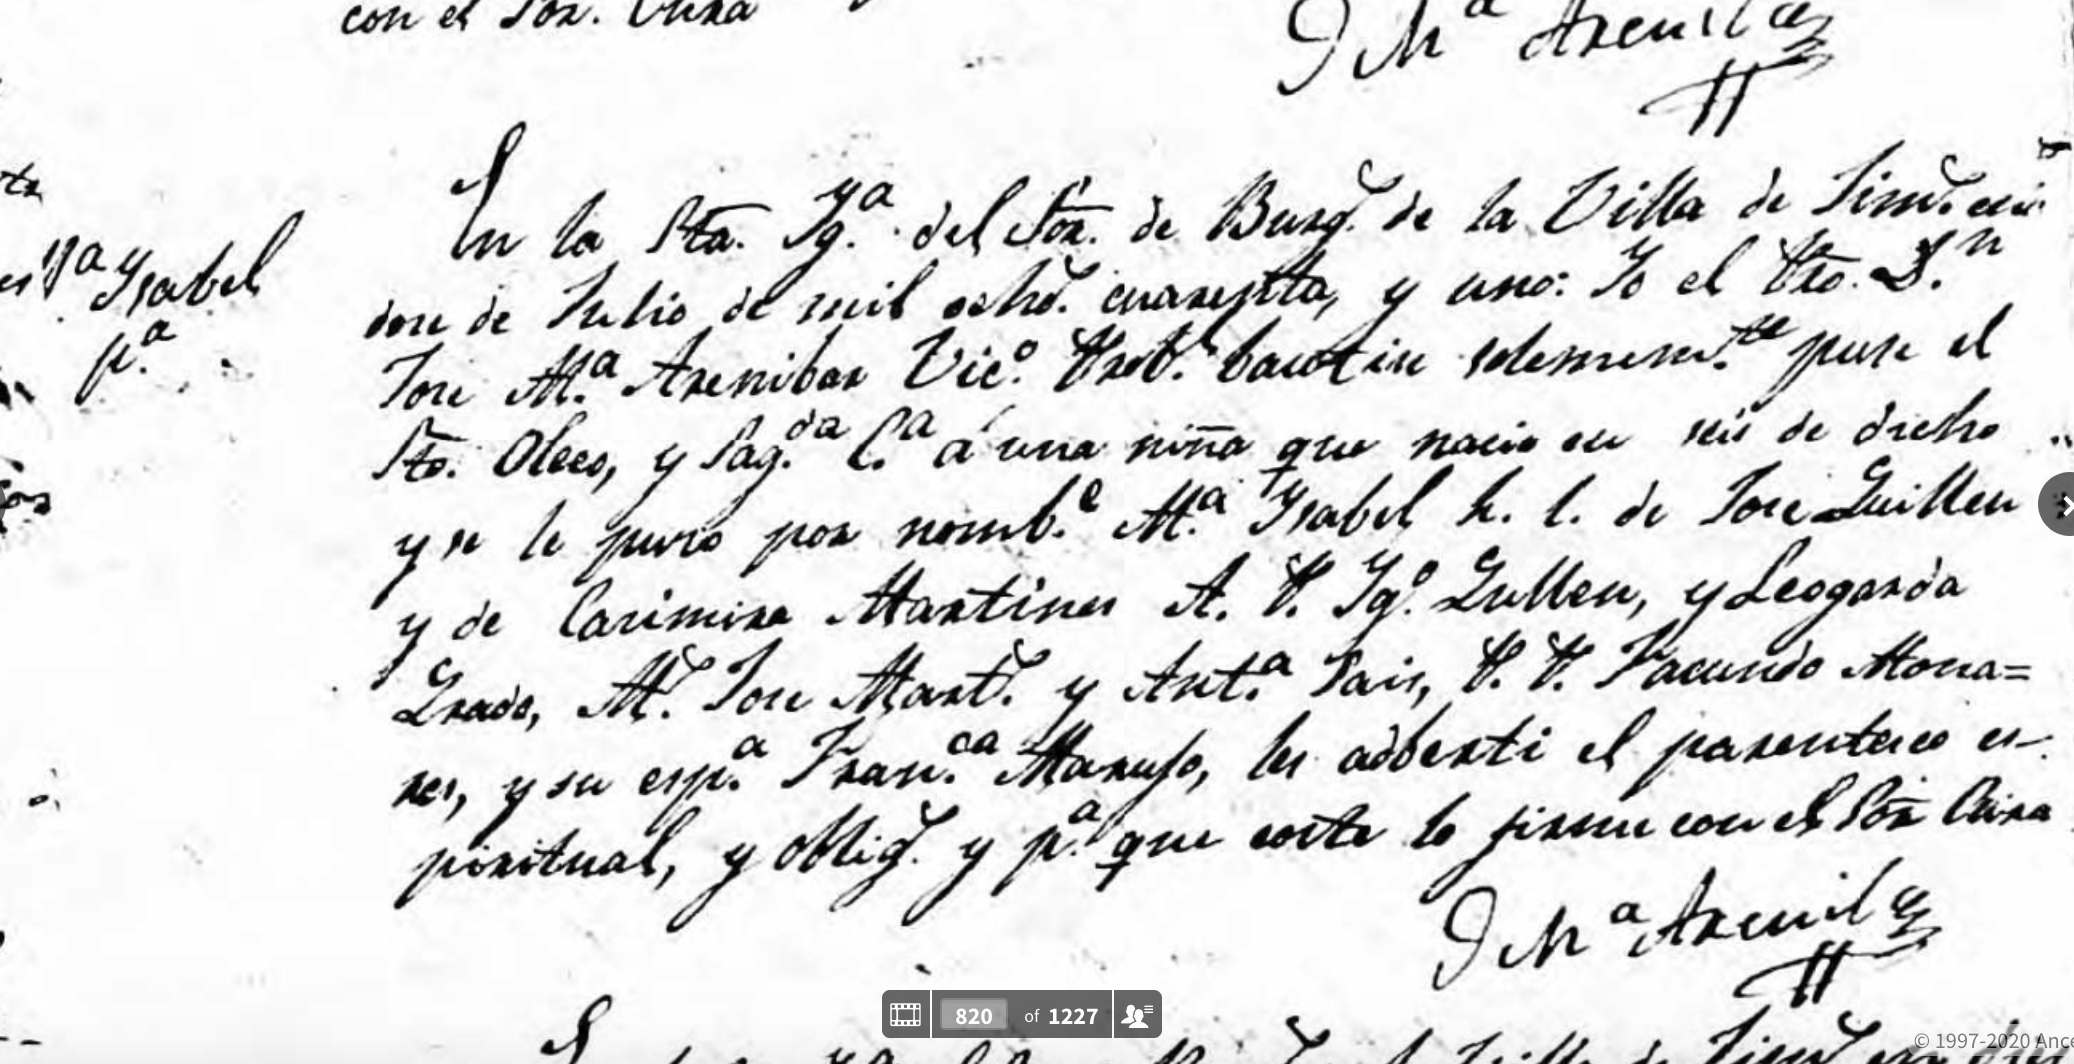 con el Sor. Cura
J M.a Arenibar
En la Sta. Yg.a del Sor. de Burg.s de la Villa de
doze de Julio de mil ocho. cuarenta, y uno: Yo el Pro. D.n
Jose M.a Arenibar Vic.o Prov.l bautise solemnem.te puse el
Sto. Oleo, y Sag.da C.a á una niña que nacio en seis de dicho
y se le puso por nomb.e M.a Ysabel h. l. de Jose Guillen
y de Casimira Martines A. P. Yg.o Gullen, y Leogarda
Grado, M.s Jose Mart.s y Ant.a Sais, P. P. Facundo Mona=
res, y su esp.a Fran.ca Marufo, les adberti el parenteco es-
piritual, y oblig.s y p.a que coste lo firme con el Sor Cura
J M.a Arenibar
M.a Ysabel
p.a
820 of 1227
© 1997-2020 Ance